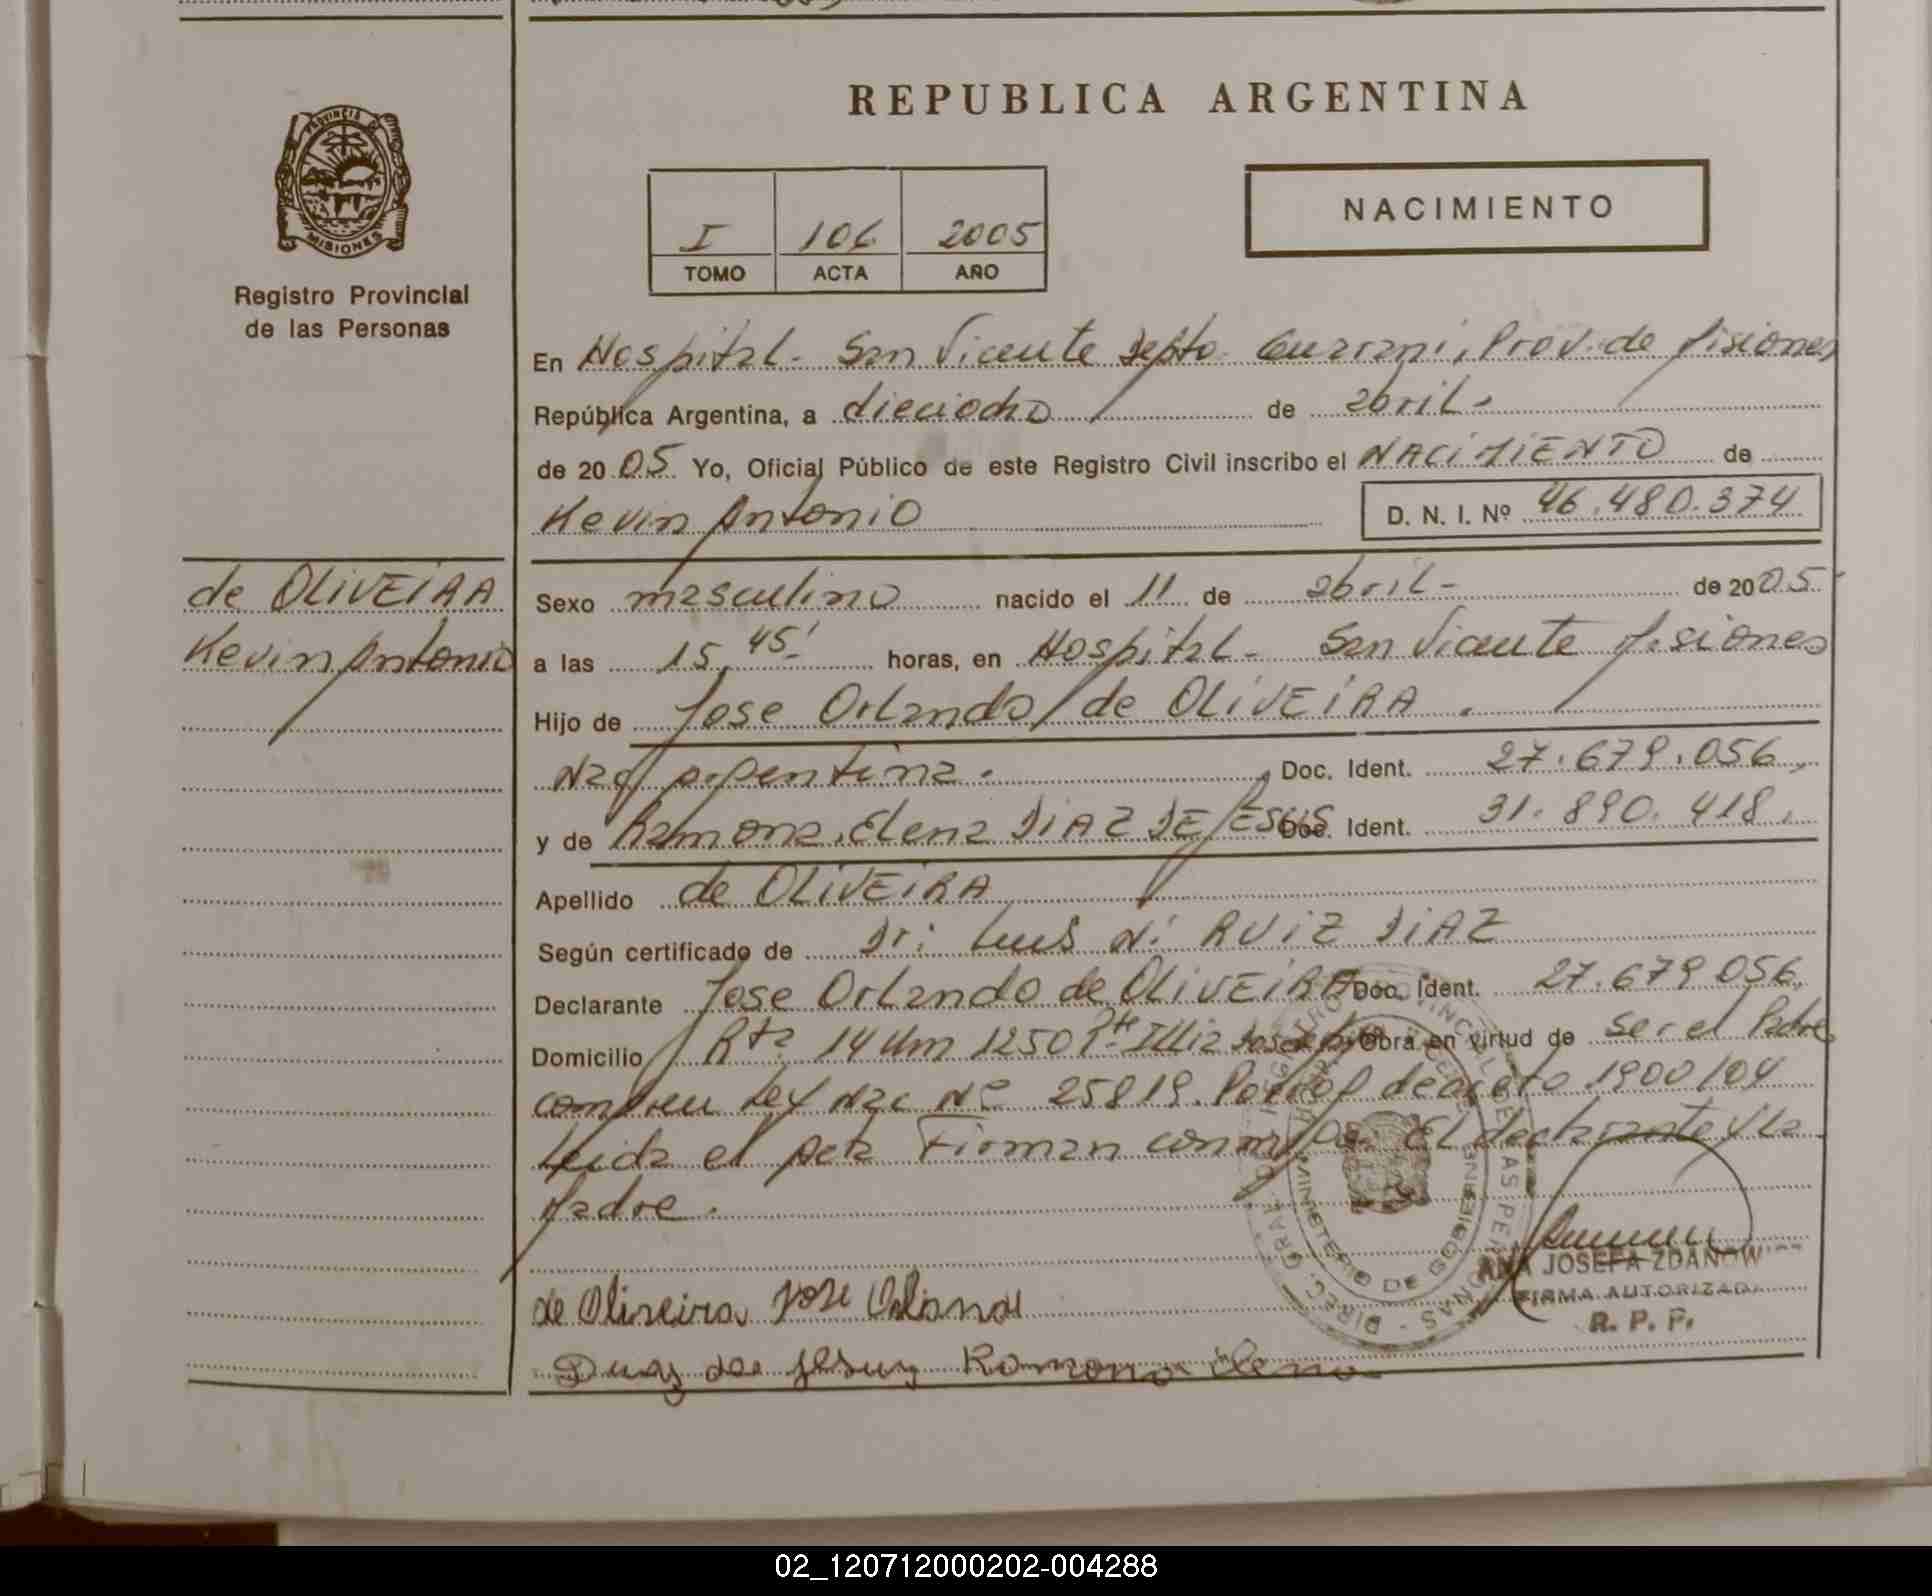 REPUBLICA ARGENTINA
PROVINCIA DE
MISIONES
Registro Provincial
de las Personas
I 106 2005
TOMO ACTA AÑO
NACIMIENTO
En Hospital - San Vicente Depto Guarani, Prov. de Misiones
República Argentina, a dieciocho de abril -
de 2005 Yo, Oficial Público de este Registro Civil inscribo el NACIMIENTO de
Kevin Antonio D. N. I. Nº 46.480.374
de OLIVEIRA
Kevin Antonio
Sexo masculino nacido el 11 de abril - de 2005
a las 15,45' horas, en Hospital - San Vicente Misiones
Hijo de Jose Orlando de OLIVEIRA .
Nac Argentina . Doc. Ident. 27.679.056,
y de Ramona Elena DIAZ DE JESUS Doc. Ident. 31.890.418.
Apellido de OLIVEIRA
Según certificado de Dr: Luis N: RUIZ DIAZ
Declarante Jose Orlando de OLIVEIRA Doc. Ident. 27.679.056,
Domicilio Rta 14 Km 1250 Obra en virtud de ser el Padre
Ley Nac Nº 25819. decreto 1900/04
Leida el Acta Firman conmigo El declarante y la
Madre .
de Oliveira Jose Orland
Diaz de Jesus Ramona Elena
DIREC. GRAL. DEL REGISTRO PROVINCIAL DE LAS PERSONAS -
MINISTERIO DE GOBIERNO
ANA JOSEFA ZDANOW
FIRMA AUTORIZADA
R. P. P.
02_120712000202-004288